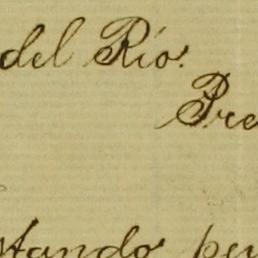 del Río.
Pre
stando pe